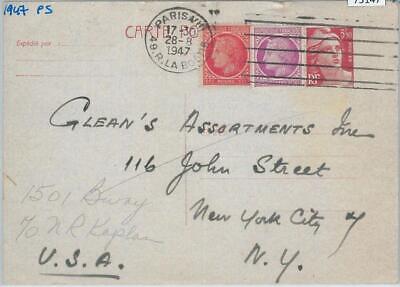 1947 PS
73147
CARTE PO
Expédié par :
PARIS VIII
17H
28-8
1947
49 R. LA BOETIE
Glean's Assortments Inc
116 John Street
New York City
N. Y.
1501 Bway
c/o N R Kaplan
U.S.A.